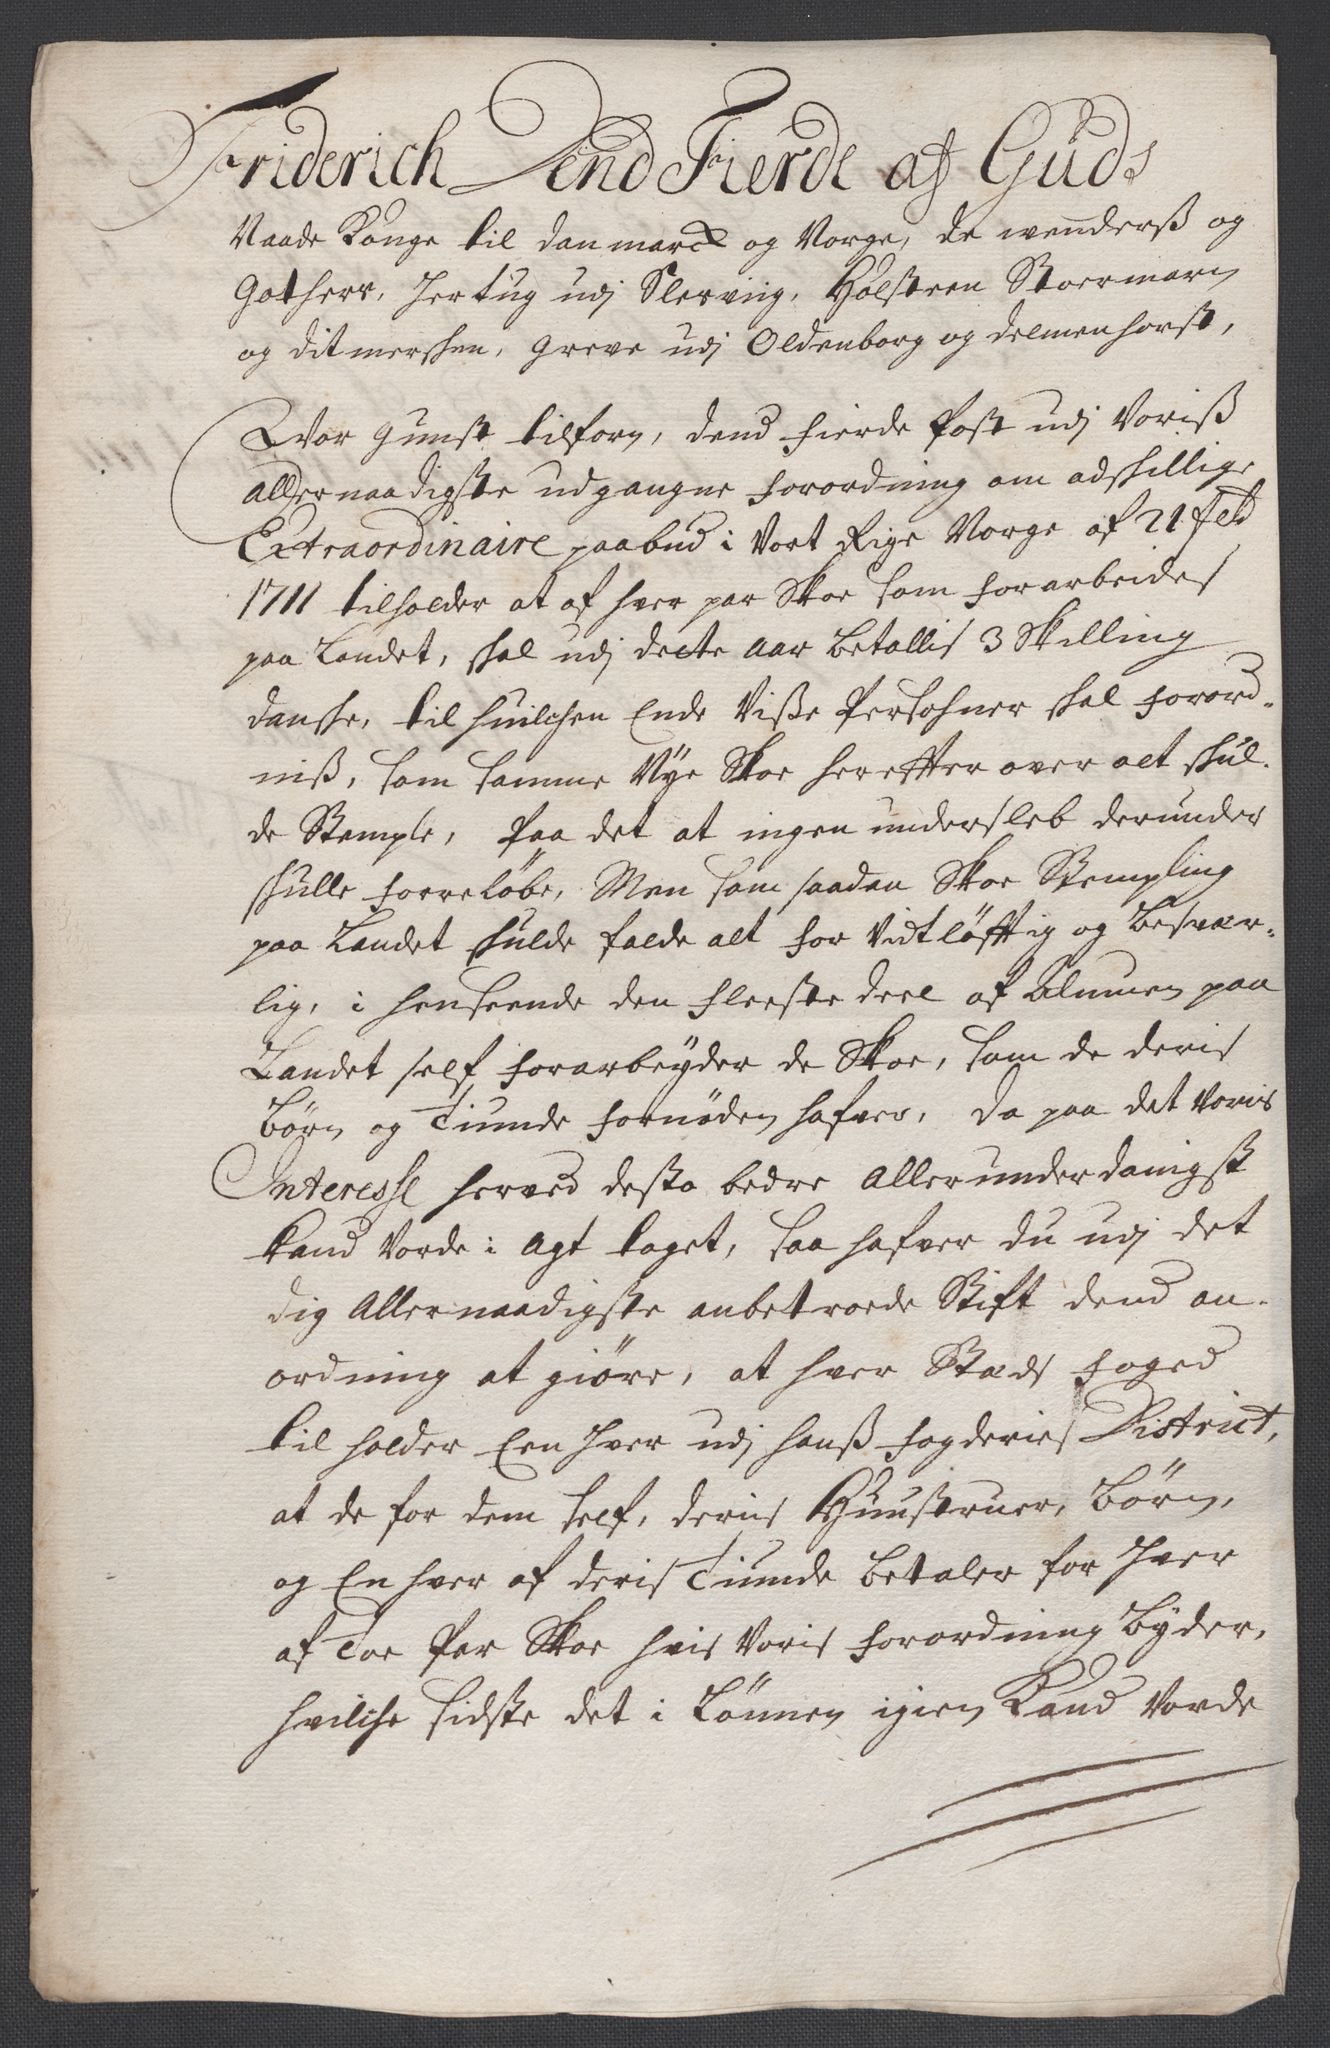 Friderich Dend Fierde af Guds
Naade Konge til Danmarck og Norge, de Wenderß og
Gothers, Hertug udj Slesvig, Holsteen Stoermarn
og Ditmershen, Greve udj Oldenborg og Delmenhorst,
Wor gunst tilforn, dend fierde Post udj Voriß
allernaadigste udgangne forordning om adskillige
Extraordinaire paabud i Vort Rige Norge af 21 feb
1711 tilholder at af hver par Skoe som forarbeides
paa Landet, skal udj dette Aar betallis 3 Skilling
danske, til huilchen Ende Viße Persohner skal forord-
niß, som samme Nye Skoe herefter over alt skul-
de Stemple, Paa det at ingen undersleb derunder
skulle forreløbe, Men som saadan Skoe Stempling
paa Landet skulde falde alt for Vidtløfftig og besvær-
lig, i henseende den fleeste deel af Almuen paa
Landet self forarbeyder de Skoe, som de deris
Børn og Tiunde fornøden hafver, Da paa det Voris
Interesse herved desto bedre Allerunderdanigst
kand Vorde i agt taget, saa hafver du udj det
dig Allernaadigste anbetroede Stift dend an-
ordning at giøre, at hver Stæds foged
til holder Een hver udj hanß fogderies District,
at de for dem self, deris Huustruer, Børn,
og En hver af deris Tiunde betaler for hver
af Toe Par Skoe hvis Voris forordning byder,
hvilche sidste det i Lønnen igien Kand Vorde